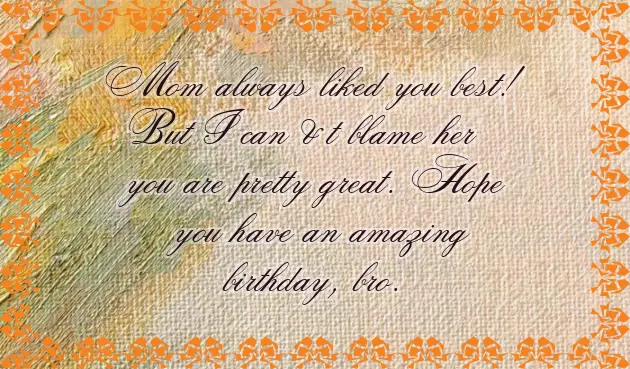 Mom always liked you best!
But I can &t blame her
you are pretty great. Hope
you have an amazing
birthday, bro.